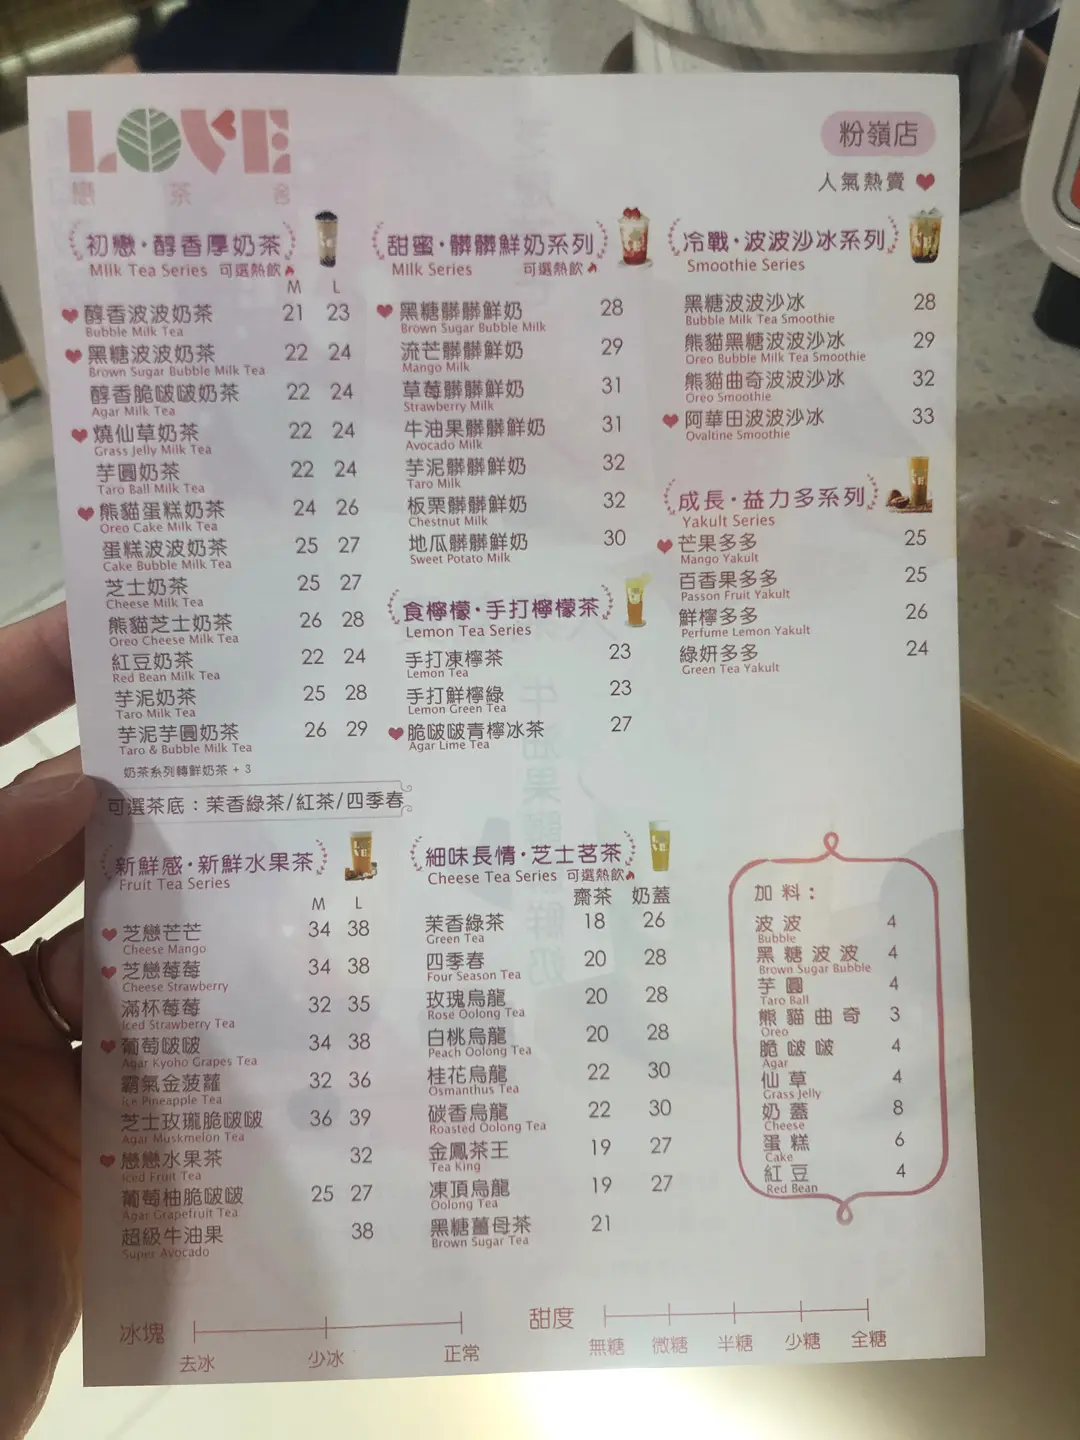 LOVE
戀茶舍
粉嶺店
人氣熱賣
初戀·醇香厚奶茶
Milk Tea Series 可選熱飲
M L
醇香波波奶茶 21 23
Bubble Milk Tea
黑糖波波奶茶 22 24
Brown Sugar Bubble Milk Tea
醇香脆啵啵奶茶 22 24
Agar Milk Tea
燒仙草奶茶 22 24
Grass Jelly Milk Tea
芋圓奶茶 22 24
Taro Ball Milk Tea
熊貓蛋糕奶茶 24 26
Oreo Cake Milk Tea
蛋糕波波奶茶 25 27
Cake Bubble Milk Tea
芝士奶茶 25 27
Cheese Milk Tea
熊貓芝士奶茶 26 28
Oreo Cheese Milk Tea
紅豆奶茶 22 24
Red Bean Milk Tea
芋泥奶茶 25 28
Taro Milk Tea
芋泥芋圓奶茶 26 29
Taro & Bubble Milk Tea
奶茶系列轉鮮奶茶 + 3
可選茶底：茉香綠茶/紅茶/四季春
甜蜜·髒髒鮮奶系列
Milk Series 可選熱飲
黑糖髒髒鮮奶 28
Brown Sugar Bubble Milk
流芒髒髒鮮奶 29
Mango Milk
草莓髒髒鮮奶 31
Strawberry Milk
牛油果髒髒鮮奶 31
Avocado Milk
芋泥髒髒鮮奶 32
Taro Milk
板栗髒髒鮮奶 32
Chestnut Milk
地瓜髒髒鮮奶 30
Sweet Potato Milk
食檸檬·手打檸檬茶
Lemon Tea Series
手打凍檸茶 23
Lemon Tea
手打鮮檸綠 23
Lemon Green Tea
脆啵啵青檸冰茶 27
Agar Lime Tea
冷戰·波波沙冰系列
Smoothie Series
黑糖波波沙冰 28
Bubble Milk Tea Smoothie
熊貓黑糖波波沙冰 29
Oreo Bubble Milk Tea Smoothie
熊貓曲奇波波沙冰 32
Oreo Smoothie
阿華田波波沙冰 33
Ovaltine Smoothie
成長·益力多系列
Yakult Series
芒果多多 25
Mango Yakult
百香果多多 25
Passon Fruit Yakult
鮮檸多多 26
Perfume Lemon Yakult
綠妍多多 24
Green Tea Yakult
新鮮感·新鮮水果茶
Fruit Tea Series
M L
芝戀芒芒 34 38
Cheese Mango
芝戀莓莓 34 38
Cheese Strawberry
滿杯莓莓 32 35
Iced Strawberry Tea
葡萄啵啵 34 38
Agar Kyoho Grapes Tea
霸氣金菠蘿 32 36
Ice Pineapple Tea
芝士玫瓏脆啵啵 36 39
Agar Muskmelon Tea
戀戀水果茶 32
Iced Fruit Tea
葡萄柚脆啵啵 25 27
Agar Grapefruit Tea
超級牛油果 38
Super Avocado
細味長情·芝士茗茶
Cheese Tea Series 可選熱飲
齋茶 奶蓋
茉香綠茶 18 26
Green Tea
四季春 20 28
Four Season Tea
玫瑰烏龍 20 28
Rose Oolong Tea
白桃烏龍 20 28
Peach Oolong Tea
桂花烏龍 22 30
Osmanthus Tea
碳香烏龍 22 30
Roasted Oolong Tea
金鳳茶王 19 27
Tea King
凍頂烏龍 19 27
Oolong Tea
黑糖薑母茶 21
Brown Sugar Tea
加料：
波波 4
Bubble
黑糖波波 4
Brown Sugar Bubble
芋圓 4
Taro Ball
熊貓曲奇 3
Oreo
脆啵啵 4
Agar
仙草 4
Grass Jelly
奶蓋 8
Cheese
蛋糕 6
Cake
紅豆 4
Red Bean
冰塊
去冰 少冰 正常
甜度
無糖 微糖 半糖 少糖 全糖